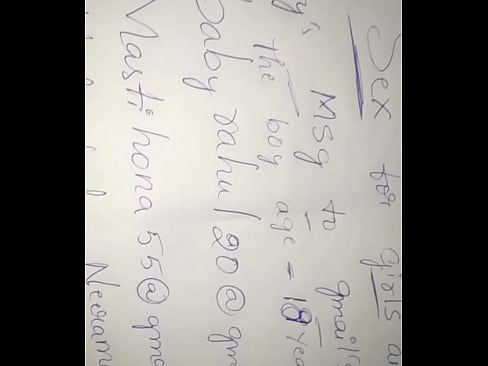 Sex for girls a
Msg to gmail
y's the boy age = 18 yea
baby rahul 20@gm
Masti hona 55@gma
Neeram